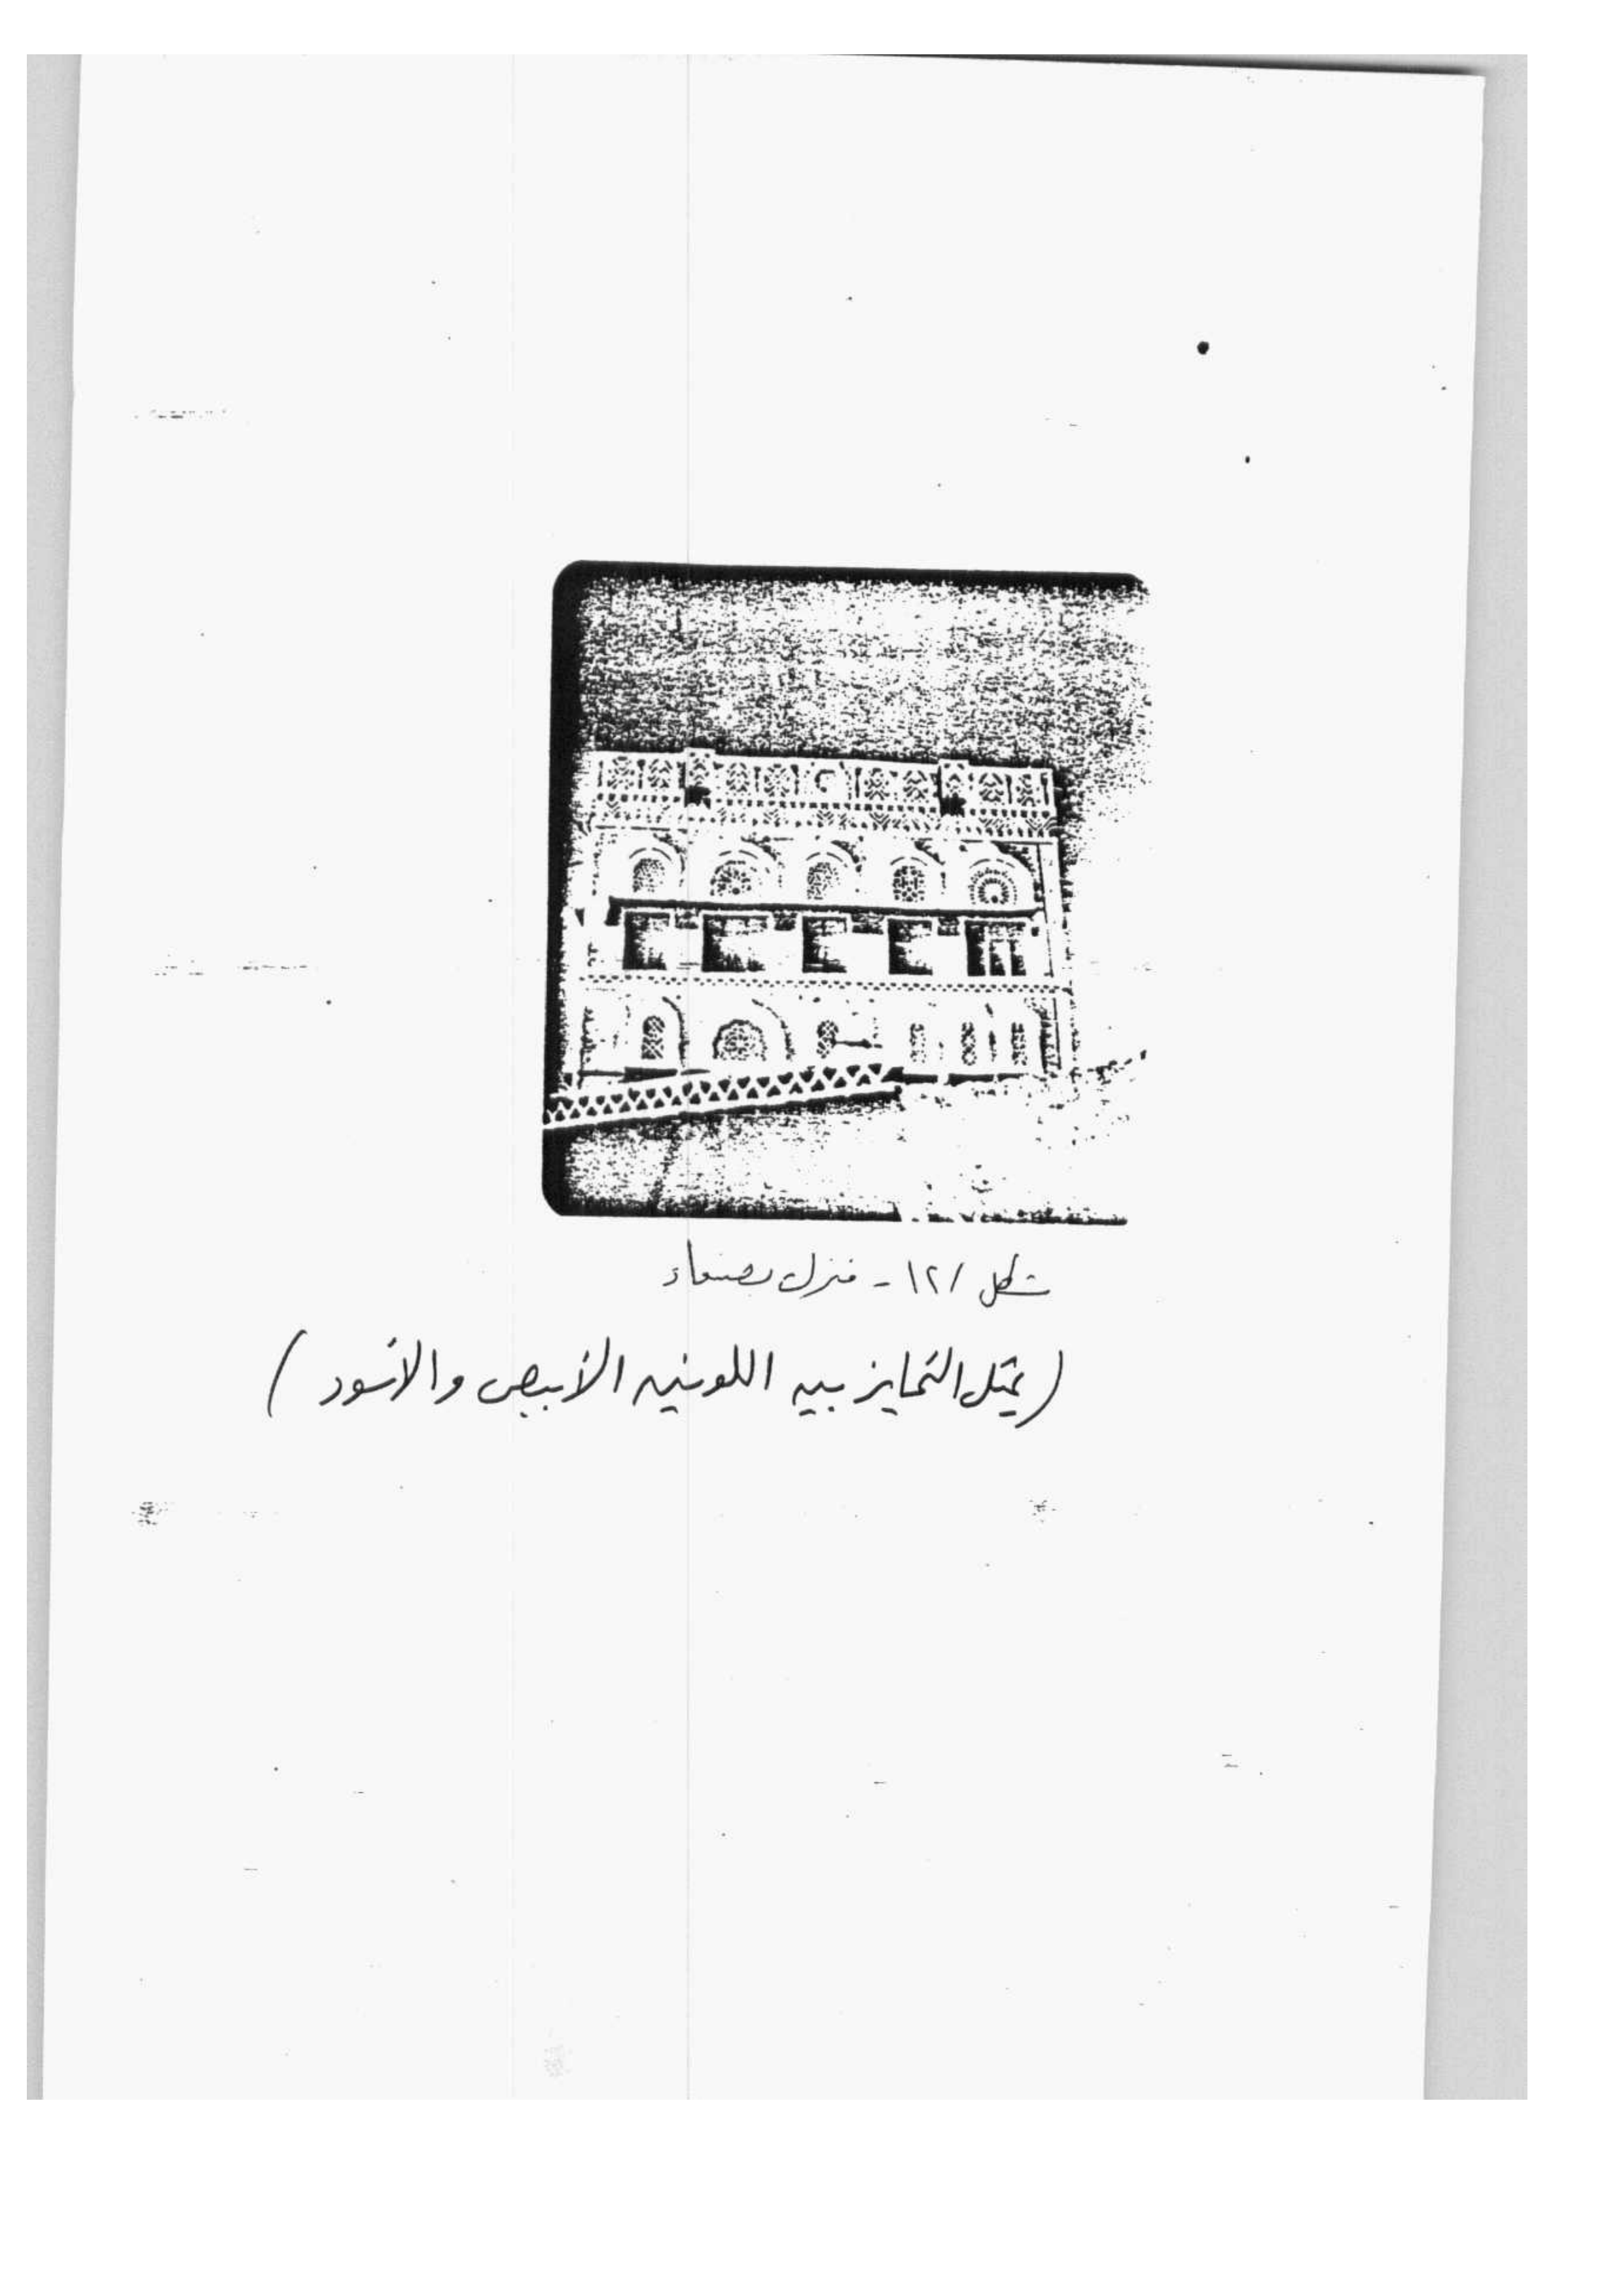 شكل /١٢ - منزل بصنعاء
(يمثل التمايز بين اللونين الأبيض والأسود)